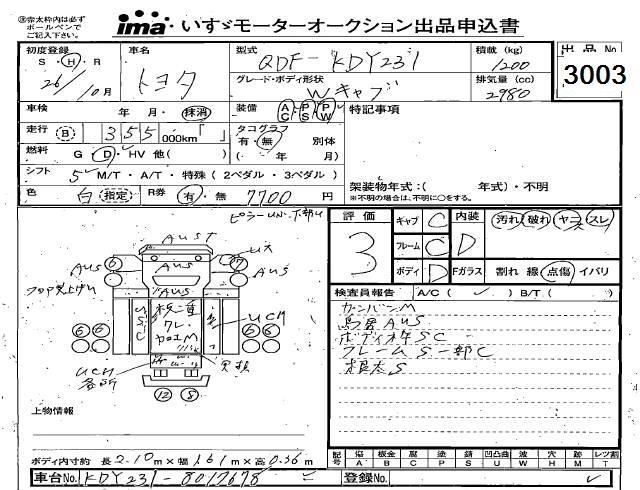 ※赤太枠内は必ずボールペンでご記入下さい。
ima いすゞモーターオークション出品申込書
初度登録 車名 型式 積載 (kg) 出品No
S・H・R 26/10月 トヨタ QDF-KDY231 1200 3003
グレード・ボディ形状 Wキャブ 排気量 (cc) 2980
車検 年 月・抹消 装備 AC PS PW 特記事項
走行 B 355 000km「 」 タコグラフ 有・無 別体
燃料 G・D・HV 他( ) ( 年 月)
シフト 5 M/T・A/T・特殊 (2ペダル・3ペダル)
架装物年式:( 年式)・不明
※不明の場合は、不明に○をする。
色 白 指定 R券 有・無 7700 円
評価 3 キャブ C 内装 D 汚れ 破れ ヤニ スレ
フレーム C
ボディ D Fガラス 割れ 線 点傷 イバリ
検査員報告 A/C( ✓ ) B/T( )
AUST
AUS
AUS
AUS
USC
UCM
加工M
UCM 各所
6 6 6 6
12 8
カンバンM
AUS
SC
フレームS一部C
根太S
上物情報
ボディ内寸約 長 2.10m×幅 1.61m×高 0.36m
記号 傷 A 板金 B 腐 C 塗 P 錆 S 凹凸曲 U 波 W 穴 H 跡 M レツ割 T
車台No. KDY231-8017678 登録No.